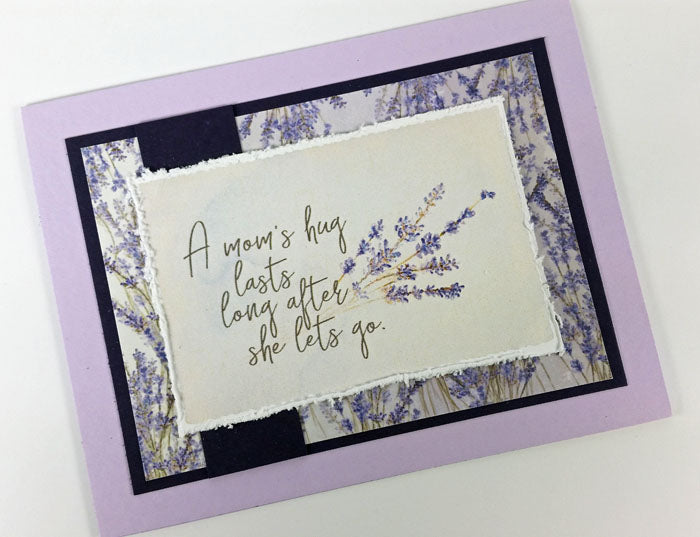 A mom's hug
lasts
long after
she lets go.